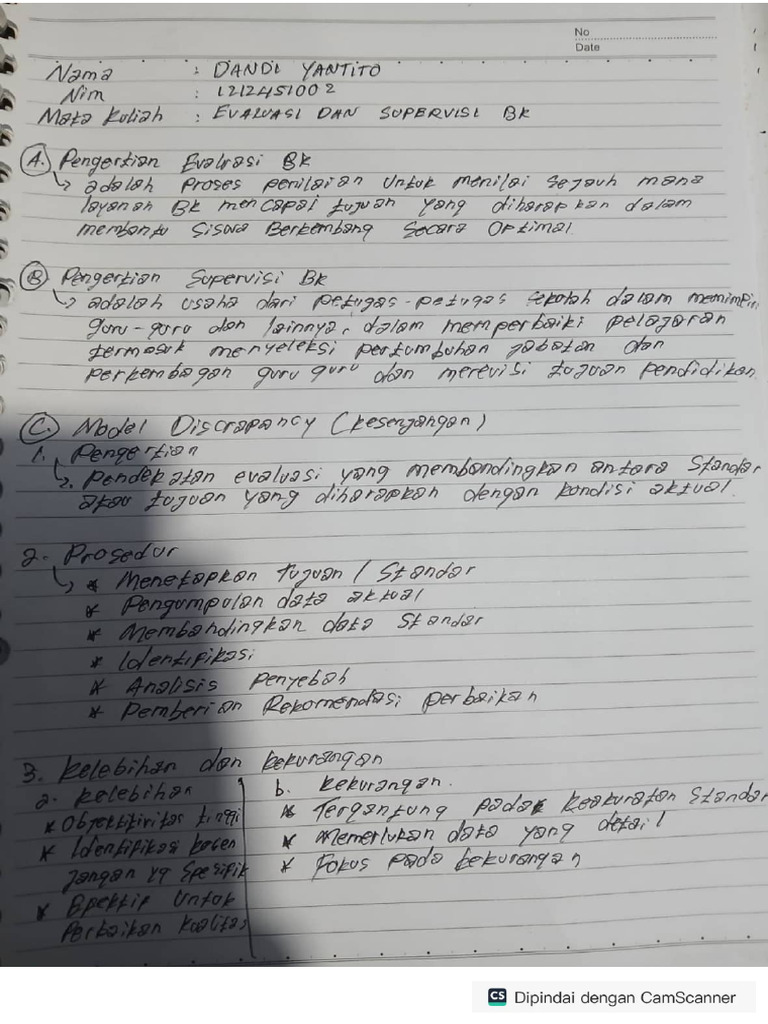 No
Date
Nama : DANDI YANTITO
Nim : 1212451002
Mata kuliah : EVALUASI DAN SUPERVISI BK
A. Pengertian Evaluasi BK
↳ adalah proses penilaian untuk menilai sejauh mana
layanan BK mencapai tujuan yang diharapkan dalam
membantu siswa Berkembang Secara Optimal
B Pengertian Supervisi BK
↳ adalah usaha dari petugas-petugas sekolah dalam memimpin
guru-guru dan lainnya, dalam memperbaiki pelajaran
termasuk menyeleksi pertumbuhan jabatan dan
perkembagan guru guru dan merevisi tujuan pendidikan
C. Model Discrapancy (kesenjangan)
1. Pengertian
↳ 2. pendekatan evaluasi yang membandingkan antara Standar
atau tujuan yang diharapkan dengan kondisi aktual.
2. Prosedur
↳ * Menetapkan Tujuan / Standar
* Pengumpulan data aktual
* Membandingkan data Standar
* Identifikasi
* Analisis Penyebab
* Pemberian Rekomendasi perbaikan
3. kelebihan dan kekurangan
a. kelebihan
* Objektifitas tinggi
* Identifikasi kesen
jangan yg Spesifik
* Epektif Untuk
Perbaikan kualitas
b. kekurangan.
* Tergantung pada keakuratan Standar
* Memerlukan data yang detail
* Fokus pada kekurangan
CS Dipindai dengan CamScanner